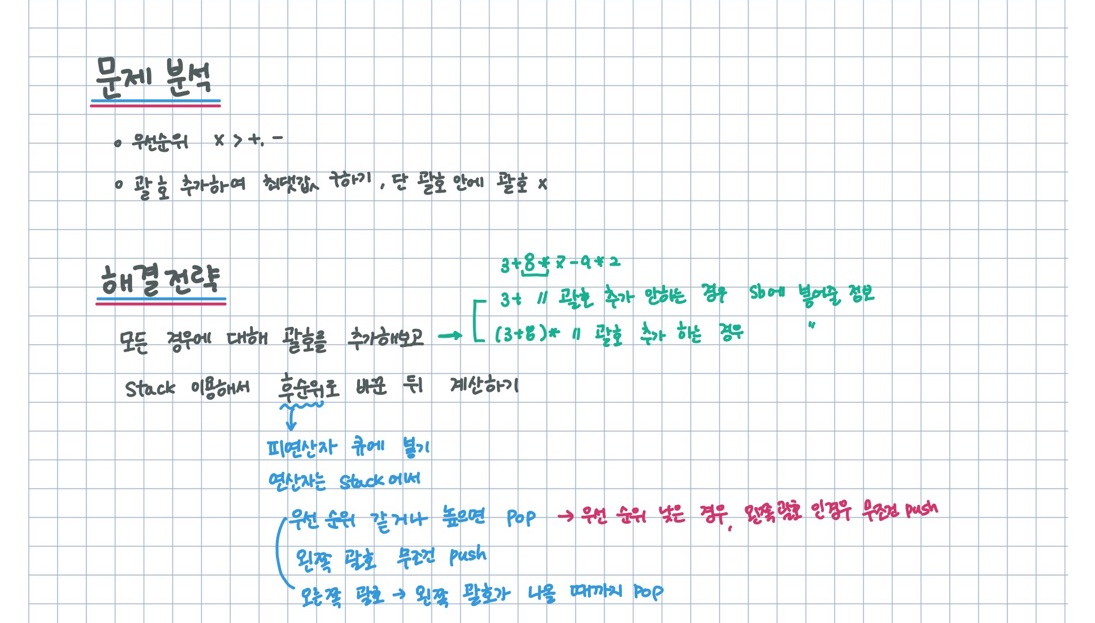 문제 분석
• 우선순위 x > +, -
• 괄호 추가하여 최댓값 구하기, 단 괄호 안에 괄호 x
해결전략
3+8*7-9*2
3+ // 괄호 추가 안하는 경우 sb에 붙여줄 정보
(3+8)* // 괄호 추가 하는 경우 "
모든 경우에 대해 괄호를 추가해보고 →
Stack 이용해서 후순위로 바꾼 뒤 계산하기
피연산자 큐에 넣기
연산자는 Stack에서
우선 순위 같거나 높으면 pop → 우선 순위 낮은 경우, 왼쪽괄호 인경우 무조건 push
왼쪽 괄호 무조건 push
오른쪽 괄호 → 왼쪽 괄호가 나올 때까지 pop